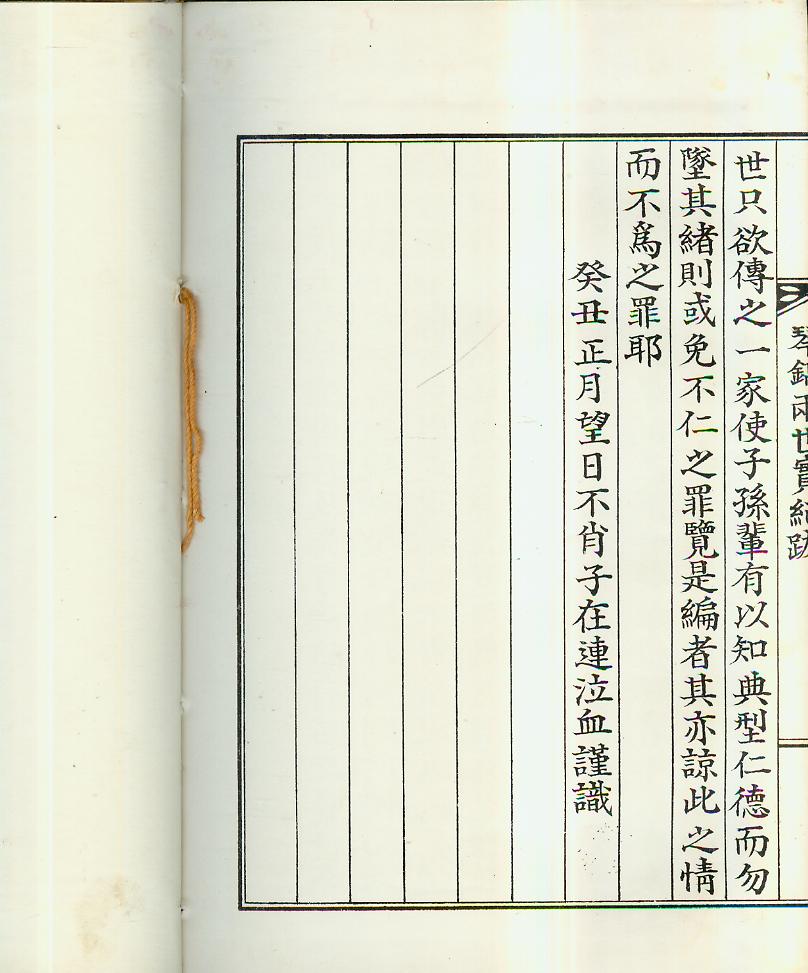 琴 兩世實紀跋
世只欲傳之一家使子孫輩有以知典型仁德而勿
墜其緖則或免不仁之罪覽是編者其亦諒此之情
而不爲之罪耶
癸丑正月望日不肖子在連泣血謹識